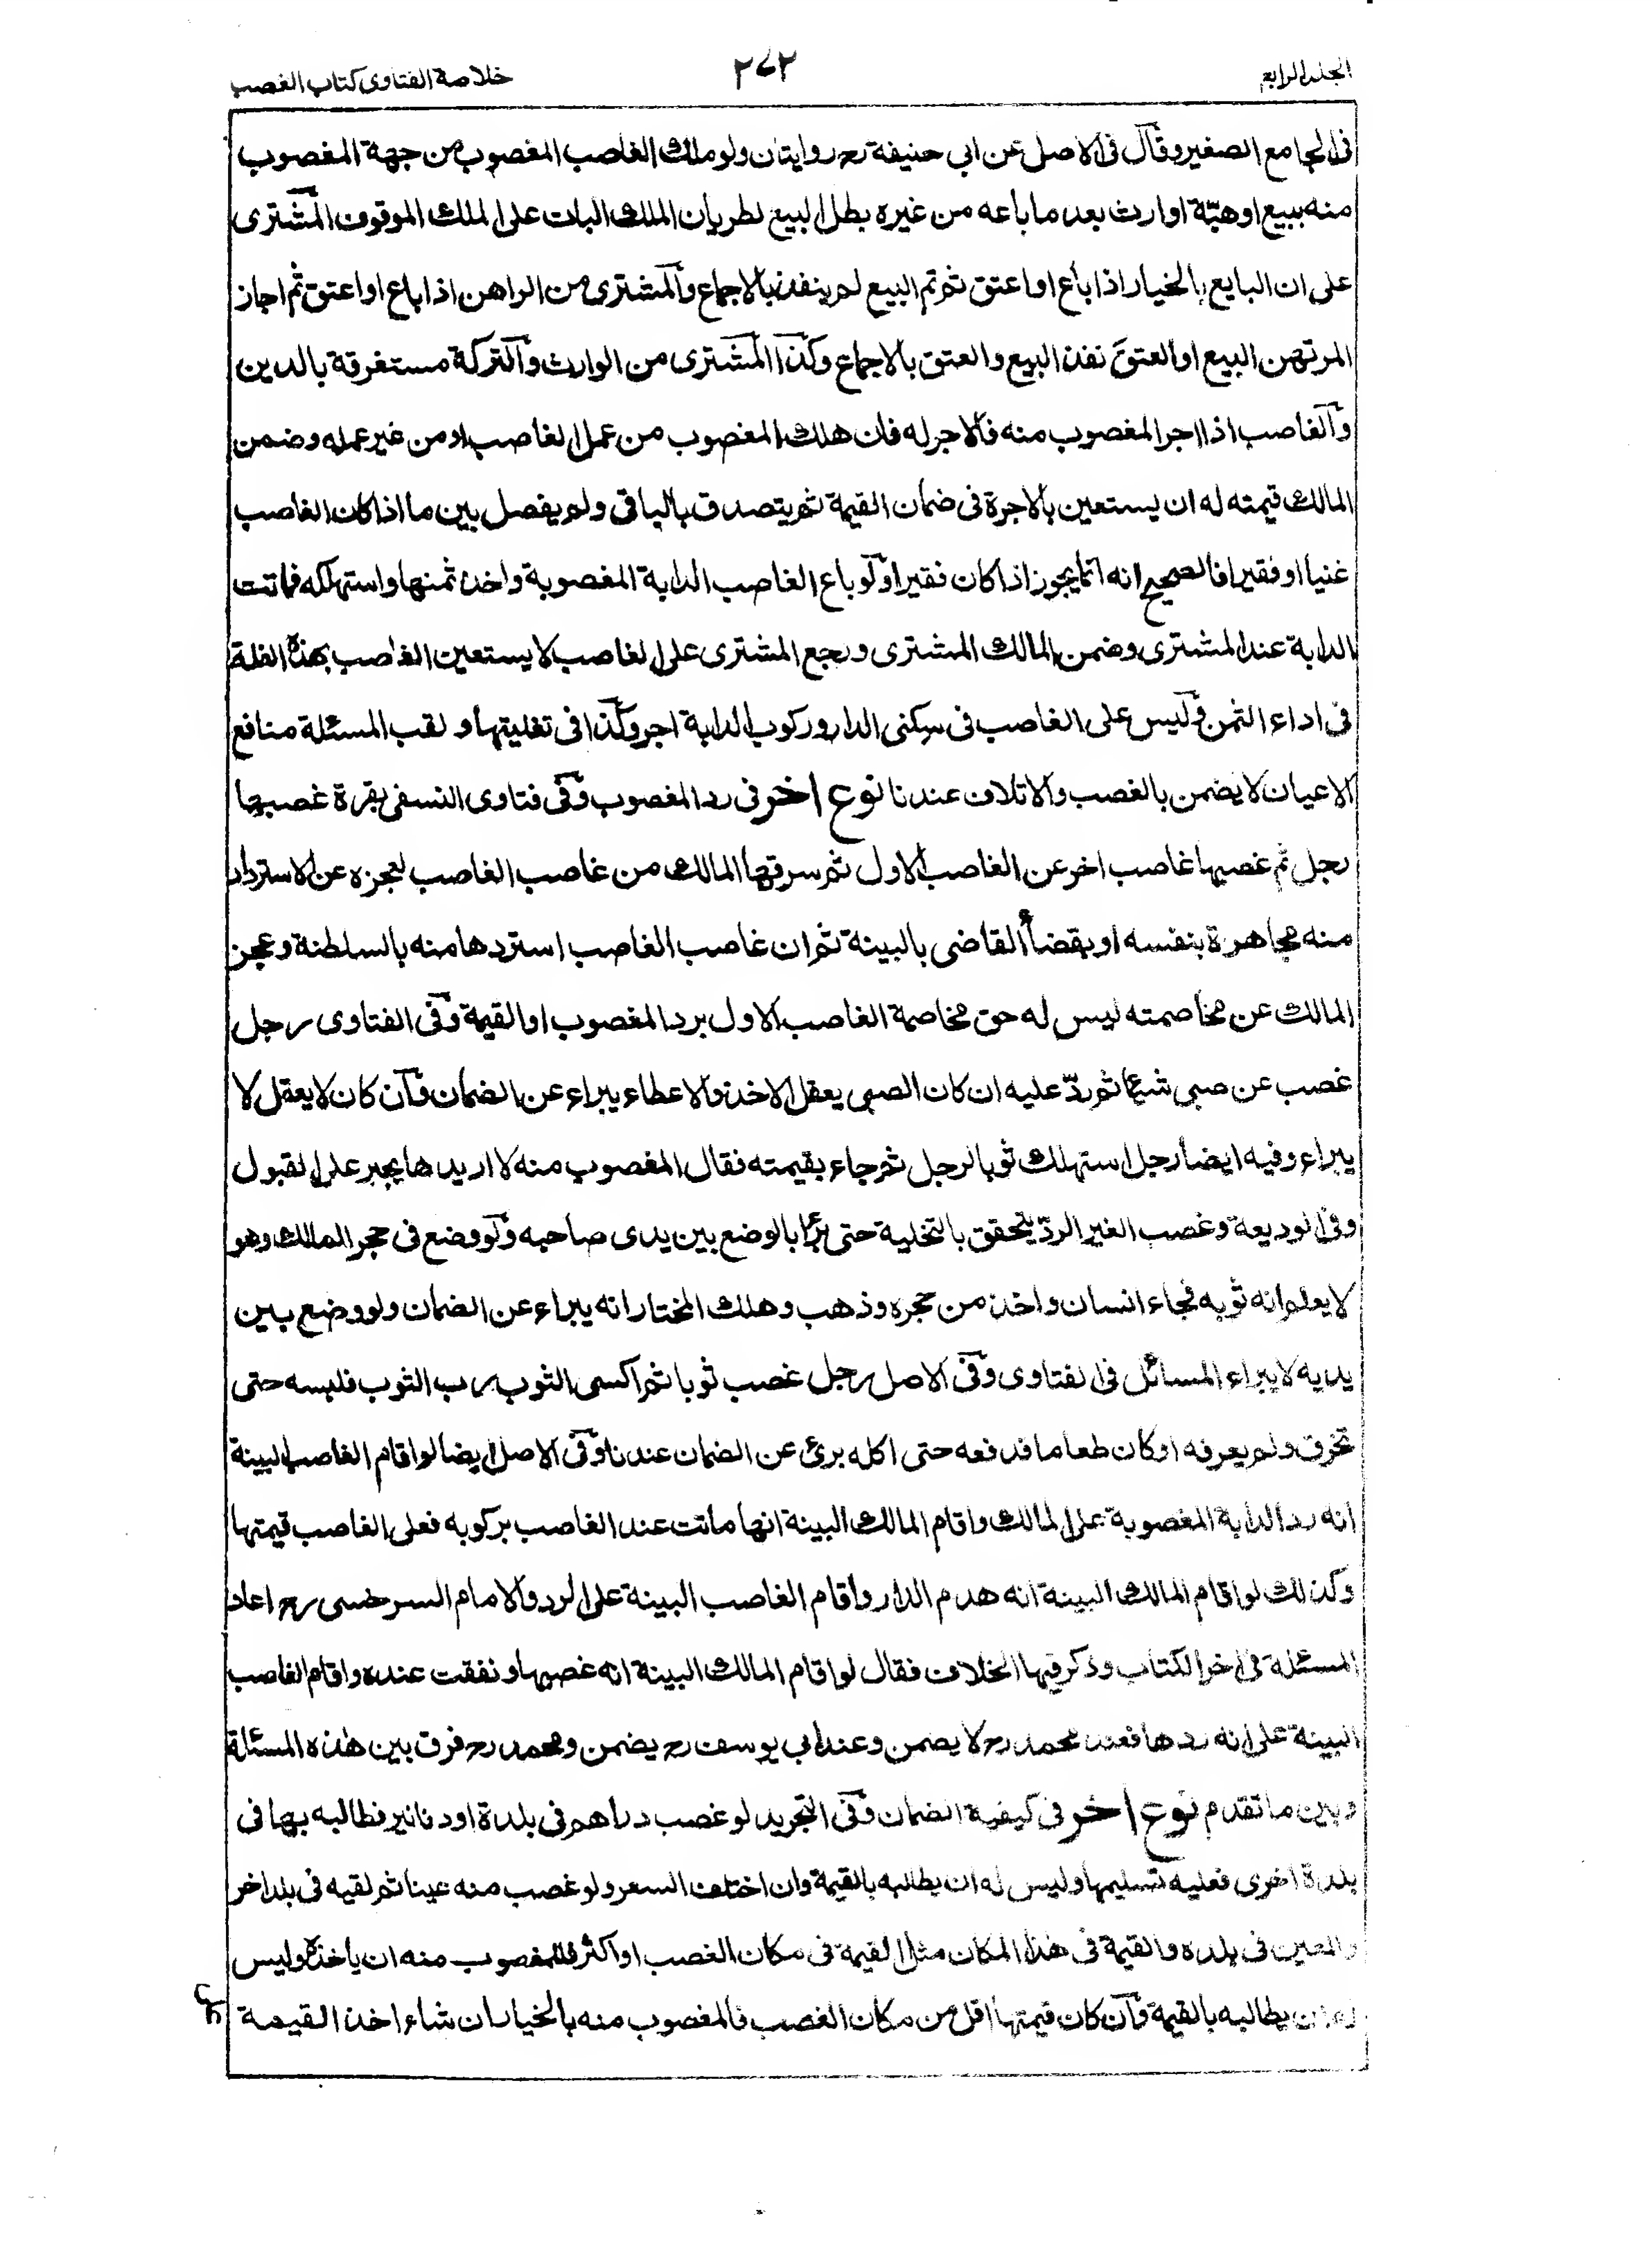 الجلد الرابع
٢٧٢
خلاصة الفتاوى كتاب الغصب
فى الجامع الصغير وقال فى الاصل عن ابى حنيفة رح روايتان ولو ملك الغاصب المغصوب من جهة المغصوب
منه ببيع او هبّة او ارث بعد ما باعه من غيره بطل البيع لطريان الملك البات على الملك الموقوف المشترى
على ان البايع بالخيار اذا باع او اعتق ثم تم البيع لم ينفذ بالاجماع والمشترى من الراهن اذا باع او اعتق ثم اجاز
المرتهن البيع او العتق نفذ البيع والعتق بالاجماع وكذا المشترى من الوارث والتركة مستغرقة بالدين
والغاصب اذا اجر المغصوب منه فالاجر له فان هلك المغصوب من عمل الغاصب او من غير عمله وضمن
المالك قيمته له ان يستعين بالاجرة فى ضمان القيمة ثم يتصدق بالباقى ولم يفصل بين ما اذا كان الغاصب
غنيا او فقيرا فالصحيح انه انما يجوز اذا كان فقيرا ولو باع الغاصب الدابة المغصوبة واخذ ثمنها واستهلكه فماتت
الدابة عند المشترى وضمن المالك المشترى ورجع المشترى على الغاصب لا يستعين الغاصب بهذه الغلة
فى اداء الثمن وليس على الغاصب فى سكنى الدار وركوب الدابة اجر وكذا فى تغليتها ولقب المسئلة منافع
الاعيان لا يضمن بالغصب والاتلاف عندنا نوع اخر فى رد المغصوب وفى فتاوى النسفى بقرة غصبها
رجل ثم غصبها غاصب اخر عن الغاصب الاول ثم سرقها المالك من غاصب الغاصب لعجزه عن الاسترداد
منه مجاهرة بنفسه او بقضاء القاضى بالبينة ثم ان غاصب الغاصب استردها منه بالسلطنة وعجز
المالك عن مخاصمته ليس له حق مخاصمة الغاصب الاول برد المغصوب او القيمة وفى الفتاوى رجل
غصب عن صبى شيئا ثم ردّ عليه ان كان الصبى يعقل الاخذ والاعطاء يبراء عن الضمان وان كان لا يعقل لا
يبراء وفيه ايضا رجل استهلك ثوبا لرجل ثم جاء بقيمته فقال المغصوب منه لا اريدها يجبر على القبول
وفى الوديعة وغصب الغير الردّ يتحقق بالتخلية حتى برئ بالوضع بين يدى صاحبه ولو وضع فى حجر المالك وهو
لا يعلم انه ثوبه فجاء انسان واخذ من حجره وذهب وهلك المختار انه يبراء عن الضمان ولو وضع بين
يديه لا يبراء المسائل فى الفتاوى وفى الاصل رجل غصب ثوبا ثم اكسى الثوب رب الثوب فلبسه حتى
تخرق ولم يعرفه او كان طعاما فدفعه حتى اكله برئ عن الضمان عندنا وفى الاصل ايضا لو اقام الغاصب البينة
انه رد الدابة المغصوبة على المالك واقام المالك البينة انها ماتت عند الغاصب بركوبه فعلى الغاصب قيمتها
وكذلك لو اقام المالك البينة انه هدم الدار واقام الغاصب البينة على الرد والامام السرخسى رح اعاد
المسئلة فى اخر الكتاب وذكر فيها الخلاف فقال لو اقام المالك البينة انه غصبها ونفقت عنده واقام الغاصب
البينة على انه ردها فعند محمد رح لا يضمن وعند ابى يوسف رح يضمن ومحمد رح فرق بين هذه المسئلة
وبين ما تقدم نوع اخر فى كيفية الضمان وفى التجريد لو غصب دراهم فى بلدة او دنانير فطالبه بها فى
بلدة اخرى فعليه تسليمها وليس له ان يطالبه بالقيمة وان اختلف السعر ولو غصب منه عينا ثم لقيه فى بلد اخر
والعين فى يده والقيمة فى هذا المكان مثل القيمة فى مكان الغصب او اكثر فللمغصوب منه ان ياخذه وليس
له ان يطالبه بالقيمة وان كان قيمتها اقل من مكان الغصب فالمغصوب منه بالخيار ان شاء اخذ القيمة